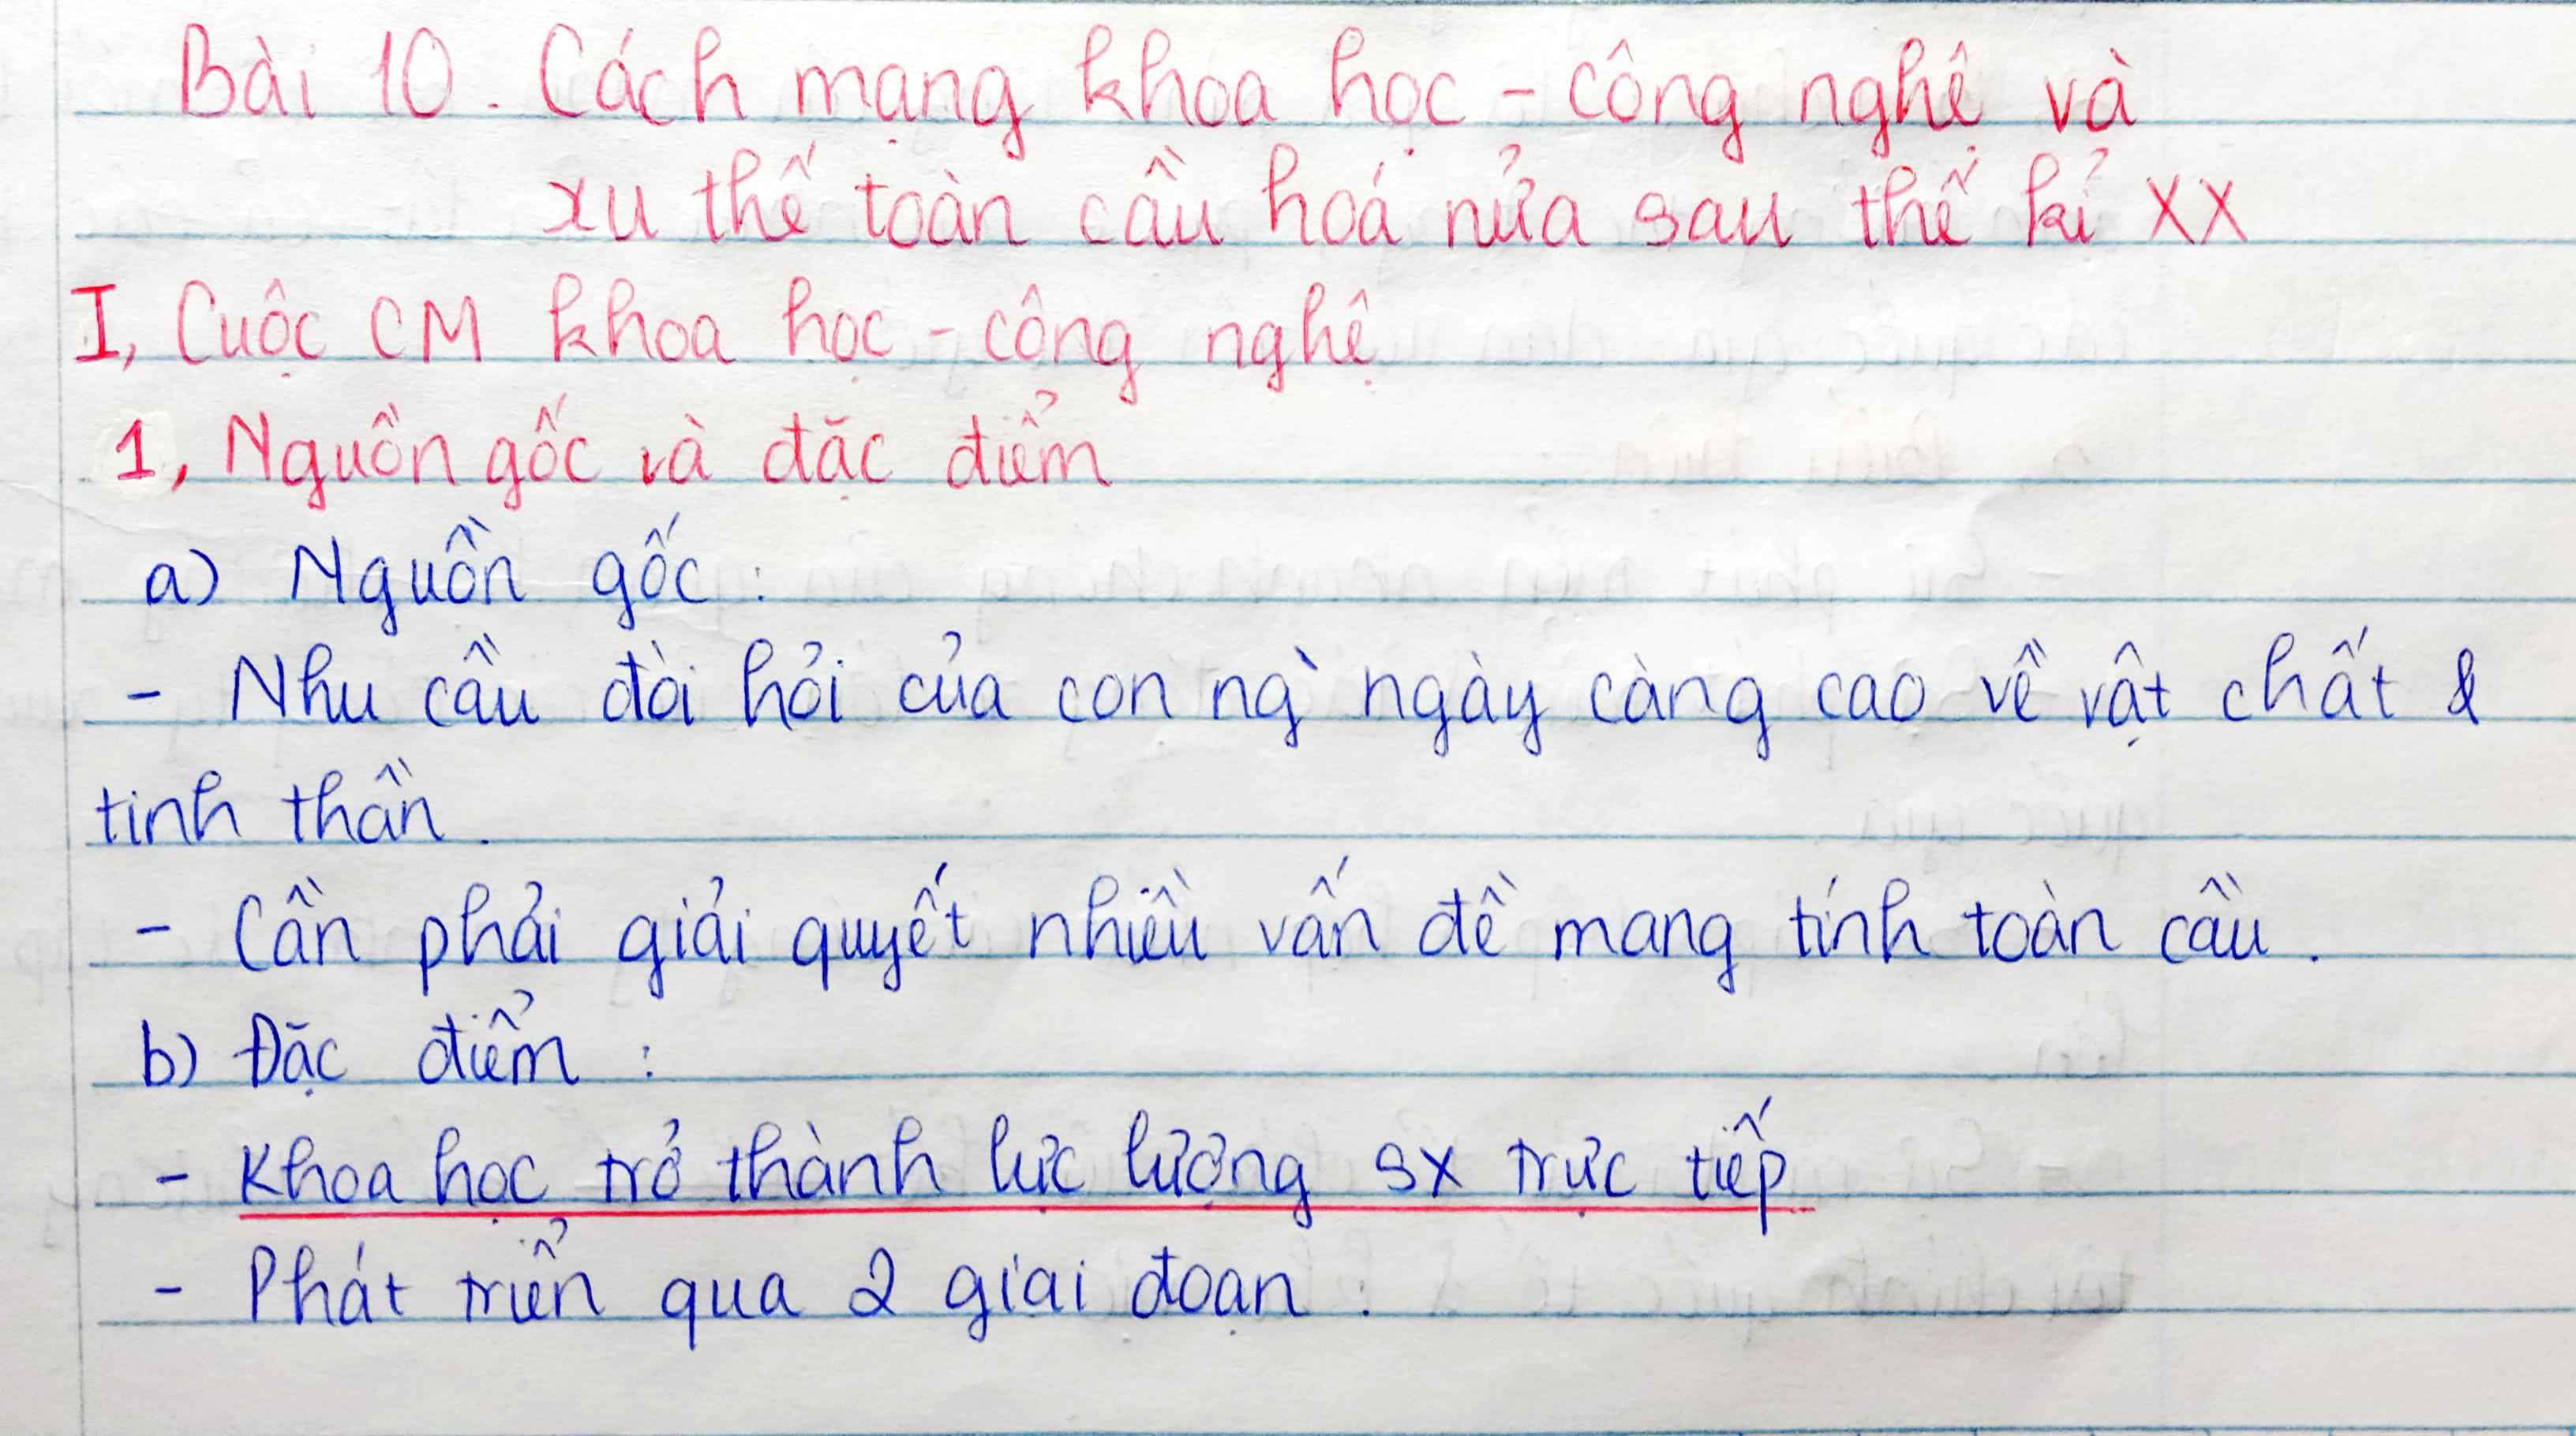 Bài 10. Cách mạng khoa học - công nghệ và
xu thế toàn cầu hoá nửa sau thế kỉ XX
I, Cuộc CM khoa học - công nghệ
1, Nguồn gốc và đặc điểm
a) Nguồn gốc :
- Nhu cầu đòi hỏi của con ng` ngày càng cao về vật chất &
tinh thần.
- Cần phải giải quyết nhiều vấn đề mang tính toàn cầu.
b) Đặc điểm :
- Khoa học trở thành lực lượng sx trực tiếp
- Phát triển qua 2 giai đoạn :